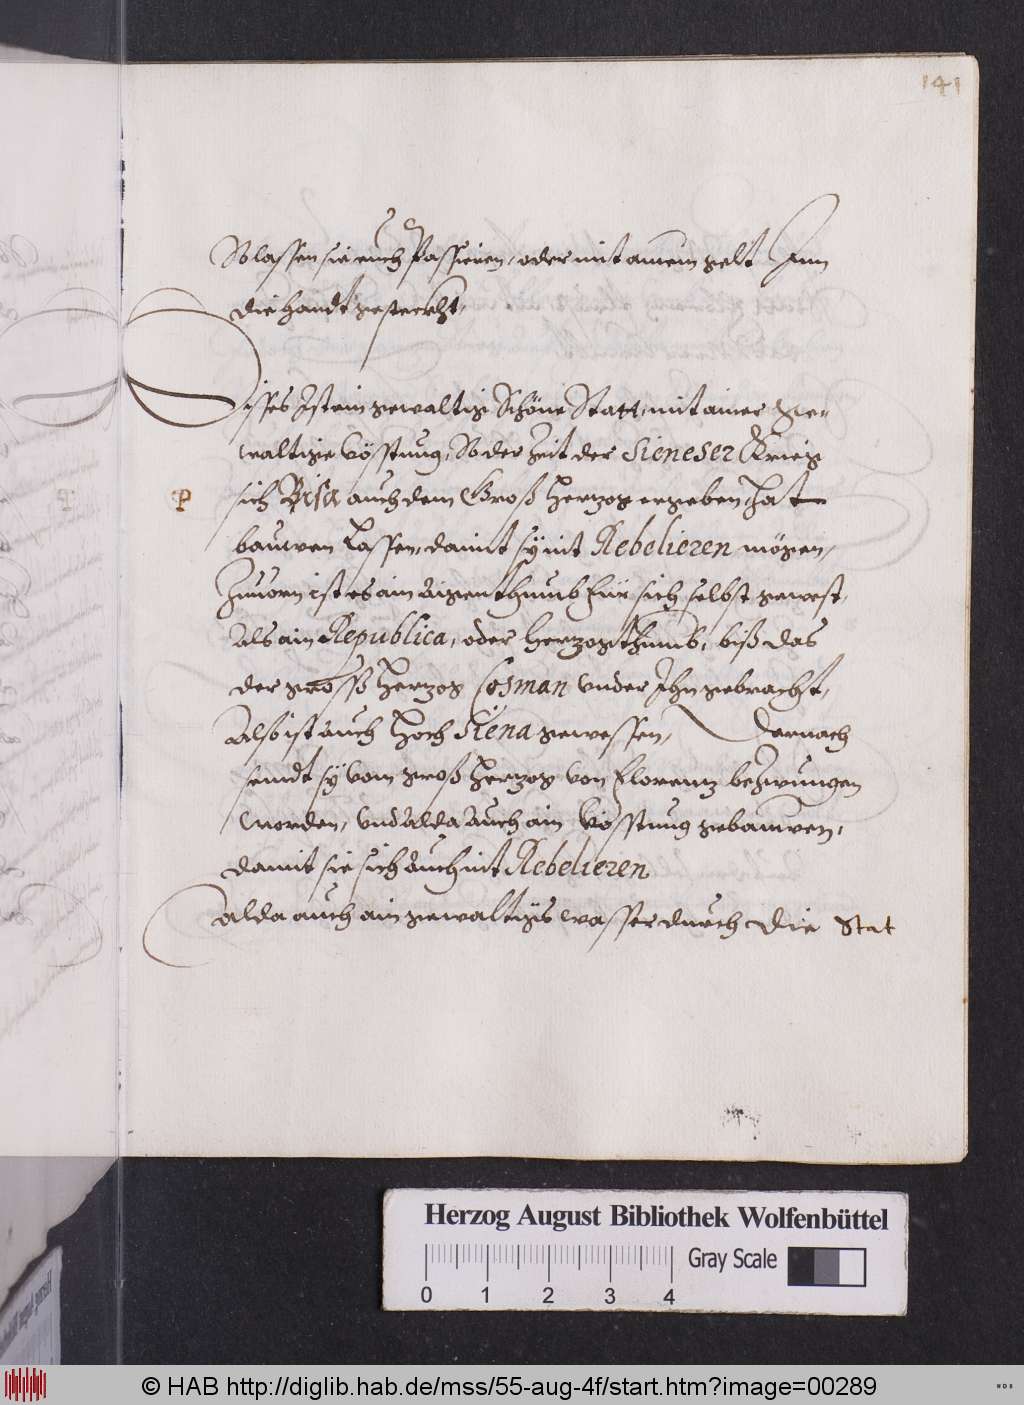 141
So lassen sie euch Passieren, oder mit ainem gelt Inn
die handt gesteckht,
Disses Ist ein gewaltig Schöne Statt, mit ainer ge-
waltige Vösstung, So der Zeit der Sieneser Krieg
P
sich Pisa auch dem Groß Hertzog ergeben, hat
bauwen Lassen, damit sy nit Rebelieren mögen,
Zuuorn ist es ain aigenthumb für sich selbst gewest,
Als ain Republica, oder Hertzogthumb, biß das
der gross Hertzog Cosman vnder Ihn gebracht,
Also ist auch Hoch Siena gewessen, Darnach
seindt sy vom groß Hertzog von Florentz bezwungen
worden, vnd alda auch ain Vösstung gebauwen,
damit sie sich auch nit Rebelieren
Alda auch ain gewaltigs wasser durch die Stat
Herzog August Bibliothek Wolfenbüttel
Gray Scale
0 1 2 3 4
© HAB http://diglib.hab.de/mss/55-aug-4f/start.htm?image=00289